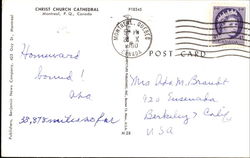 CHRIST CHURCH CATHEDRAL
Montreal, P. Q., Canada
P18245
MONTREAL, QUEBEC
PM
1960
CANADA
POST CARD
Homeward
bound!
Mrs Ada M. Brandt
920 Ensenada
Berkeley 7 Calif
USA
miles so far
Publishers, Benjamin News Company, 423 Guy St., Montreal